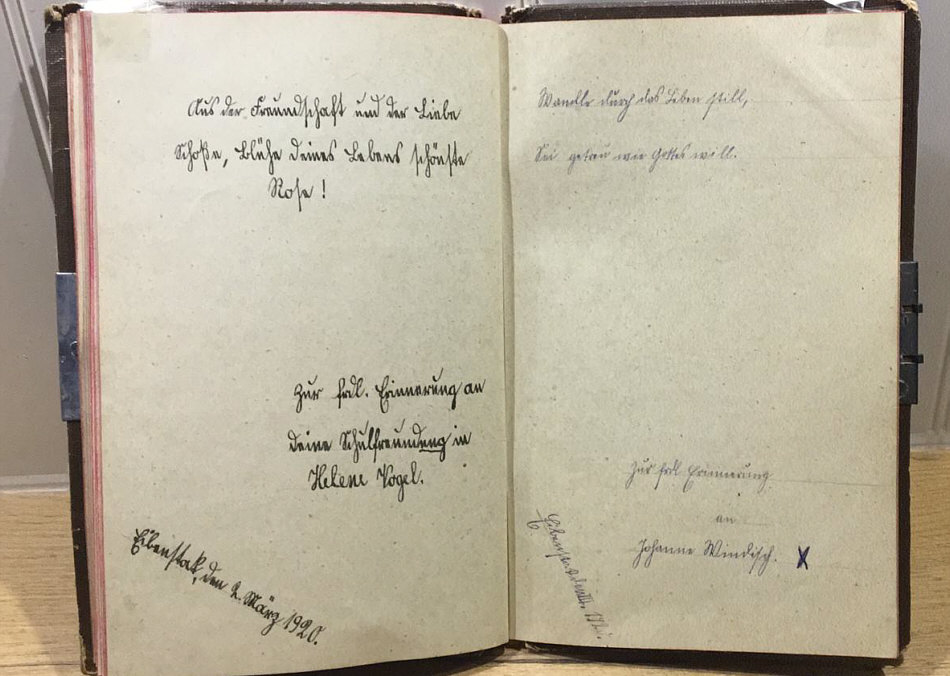 Aus der Freundschaft und der Liebe
Schoße, blühe deines Lebens schönste
Rose!
Zur frdl. Erinnerung an
deine Schulfreundin
Helene Vogel.
Eibenstock, den 2. März 1920.
Wandle durch das Leben still,
Sei getreu wie Gottes will.
Zur frdl Erinnerung
an
Johanne Windisch. X
Eibenstock